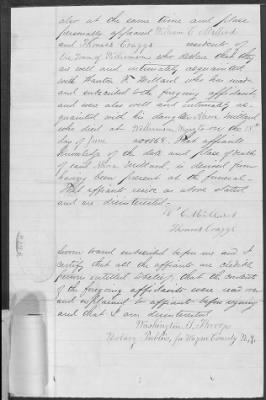 also at the same time and place
personally appeared William C. Milford
and Thomas Craggs residents of
the Town of Williamson who declare that they
as well and intimately acquainted
with Hunton W Milland who has read
and subscribed to the foregoing affidavit
and were also well and intimately ac-
quainted with his daughter Nora Milland
who died at Williamson, Wayne Co on the 18th
day of June 1868. That affiants
knowledge of the date and place of death
of said Nora Milland, is derived from
having been present at the funeral.
That affiants reside as above stated
and are disinterested.
Wm C. Milford
Thomas Craggs
Sworn to and subscribed before me and I
certify that all the affiants are credible
persons entitled to belief, that the contents
of the foregoing affidavits were read over
and explained to affiants before signing
and that I am disinterested.
Washington S. Throop
Notary Public, for Wayne County N.Y.